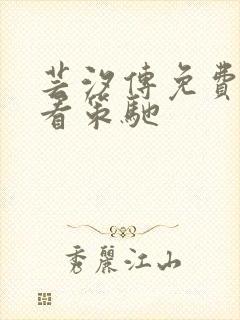 芸汐傳免費
看策馳
秀麗江山